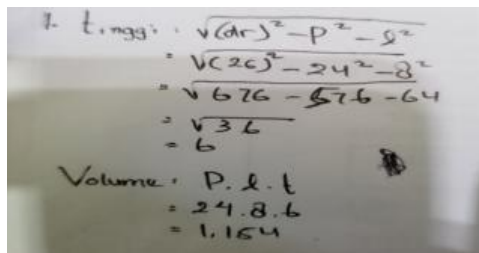 1. tinggi : √(dr)² - P² - l²
= √(26)² - 24² - 8²
= √676 - 576 - 64
= √36
= 6
Volume : P. l. t
= 24.8.6
= 1.164